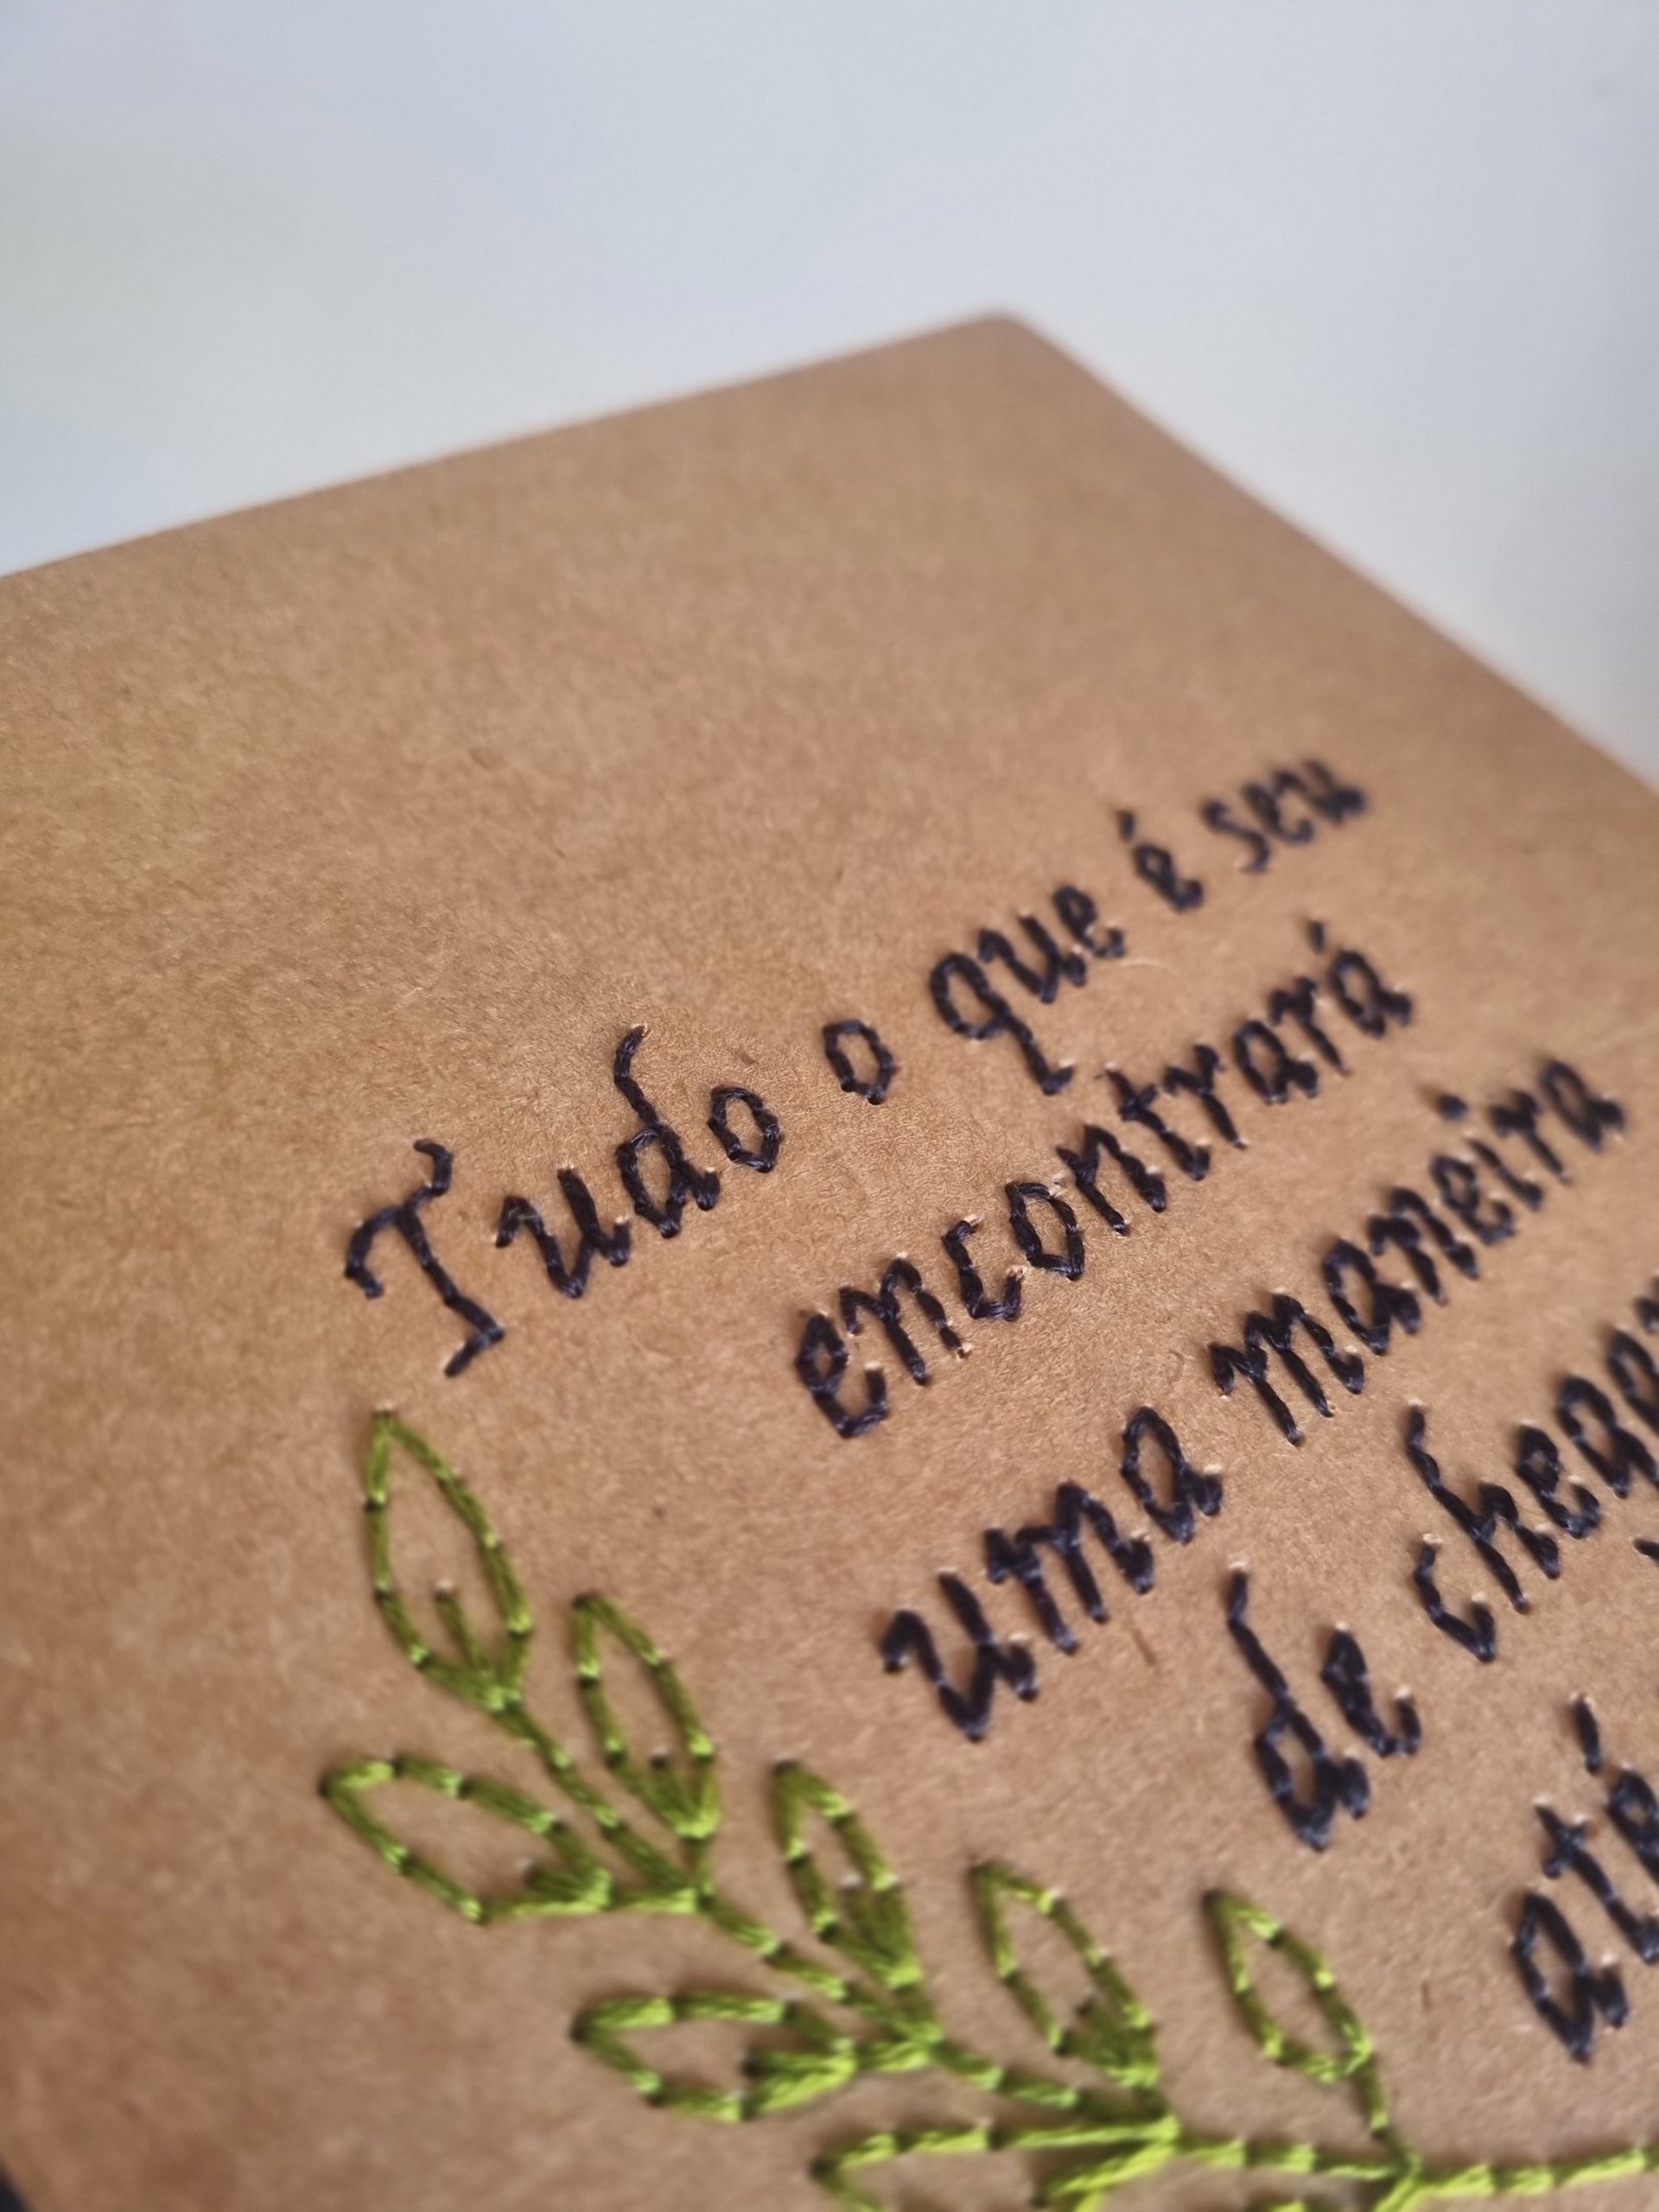 Tudo o que é seu
encontrará
uma maneira
de
até